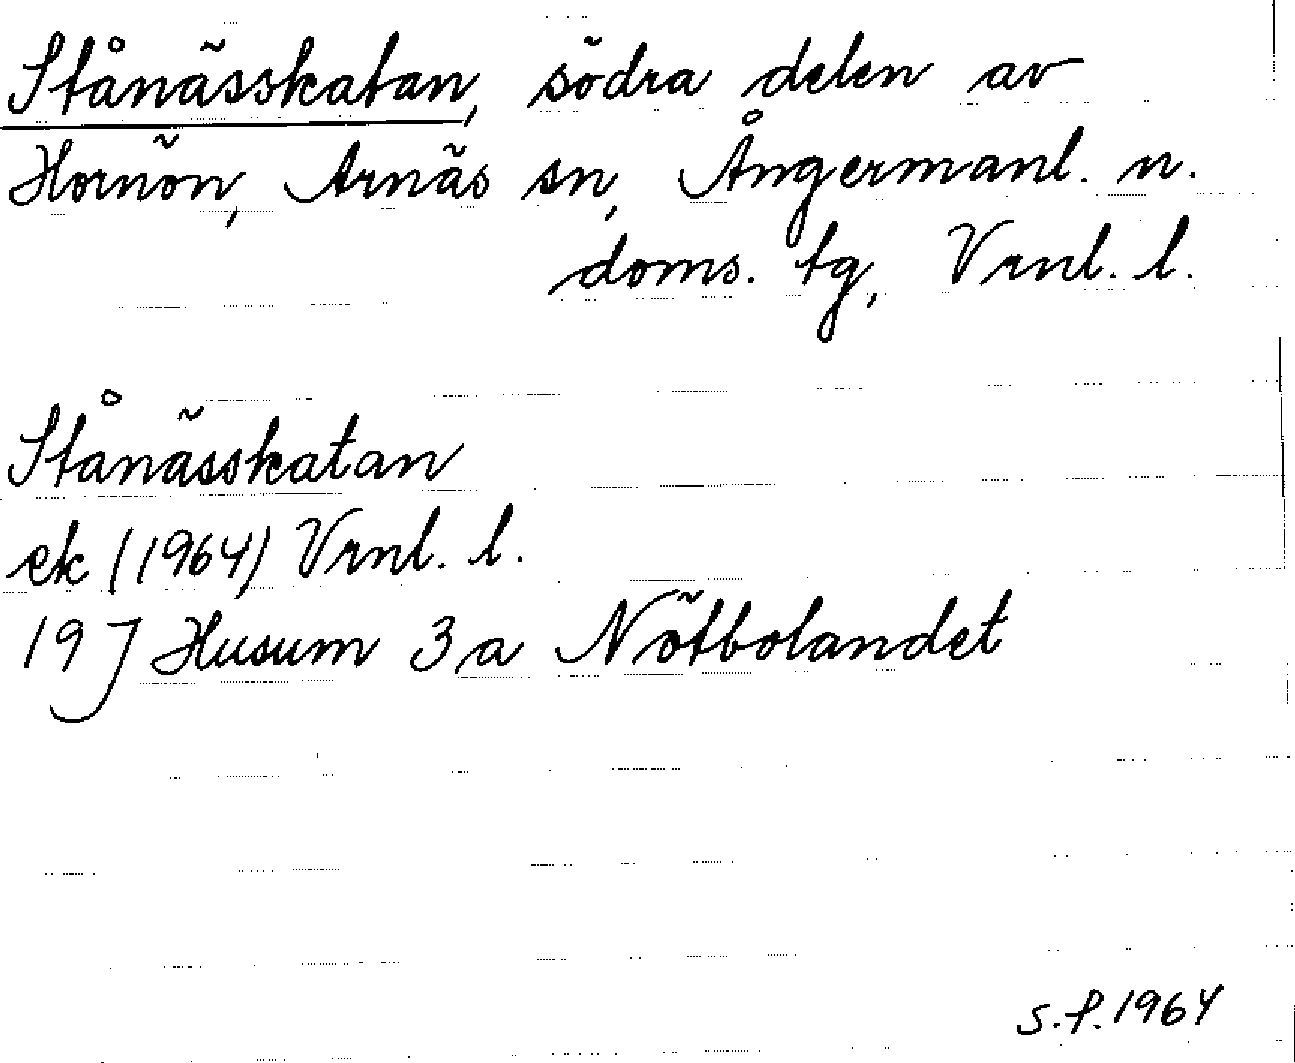 Stånässkatan, södra delen av
Hornön, Arnäs sn, Ångermanl. n.
doms. tg, Vrnl. l.
Stånässkatan
ek (1964) Vrnl. l.
19 J Husum 3 a Nötbolandet
s.f. 1964